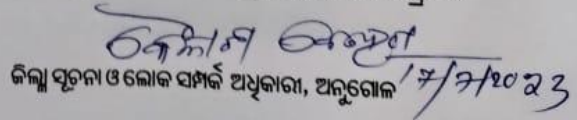 ଜିଲ୍ଲା ସୂଚନା ଓ ଲୋକ ସମ୍ପର୍କ ଅଧିକାରୀ, ଅନୁଗୋଳ 17/7/2023